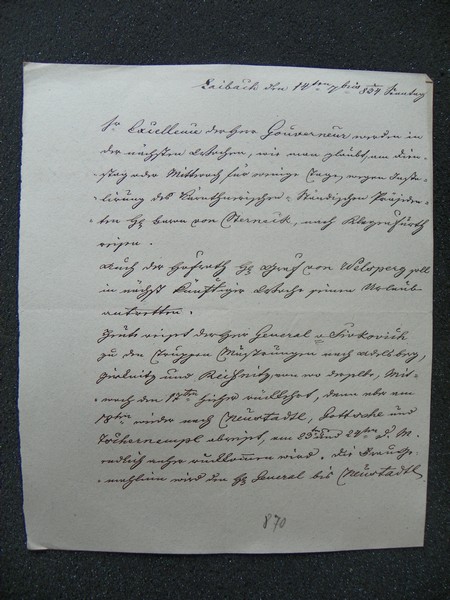 Laibach den 14ten 7bris 834 Sonntag
Sr Excellenz der Herr Gouverneur werden in
der nächsten Woche, wie man glaubt, am Dien-
stag oder Mittwoch für wenige Tage, wegen Instal-
lirung des Kärnthnerischen Ständischen Präsiden-
ten H: Baron von Sterneck, nach Klagenfurth
reisen.
Auch der Hofrath H: Graf von Welsperg soll
in nächst künftiger Woche seinen Urlaub
antretten.
Heute reiset der Herr General v
zu den Truppen Musterungen nach Adelsberg,
Zirknitz und Reifnitz, von wo derselbe, Mit-
woch den 17ten hieher rückkehrt, dann aber am
18ten wieder nach Neustadtl, Gottschee und
Tschernempl abreiset, am 23ten und 24ten d. M.
endlich anher rückkommen wird. Die Frau Ge-
mahlinn wird den H: General bis Neustadtl
870